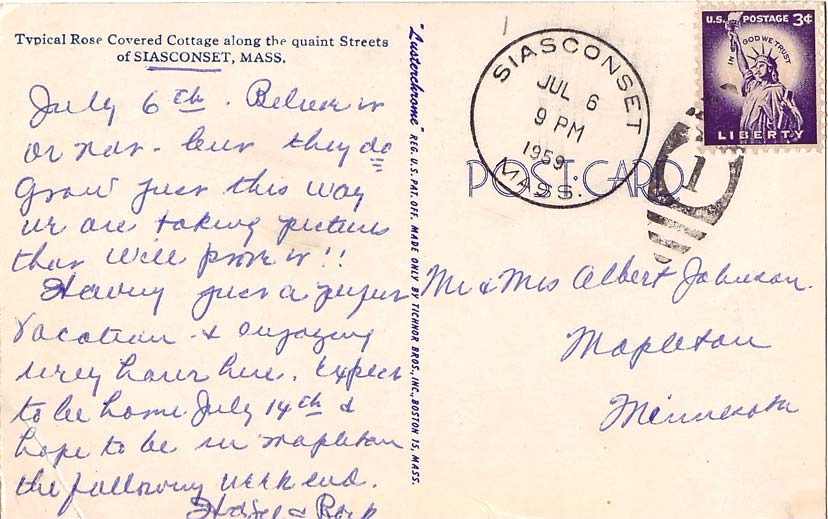 Typical Rose Covered Cottage along the quaint Streets
of SIASCONSET, MASS.
July 6th. Believe it
or not - but they do
grow just this way
we are taking pictures
that will prove it!!
Having just a perfect
vacation & enjoying
every hour here. Expect
to be home July 14th &
hope to be in Mapleton
the following week end.
Hazel &
"Lusterchrome" REG. U.S. PAT. OFF. MADE ONLY BY TICHNOR BROS., INC., BOSTON 15, MASS.
POST CARD
SIASCONSET
JUL 6
9 PM
1959
MASS.
1
U.S. POSTAGE 3¢
IN GOD WE TRUST
LIBERTY
Mr & Mrs Albert Johnson.
Mapleton
Minnesota